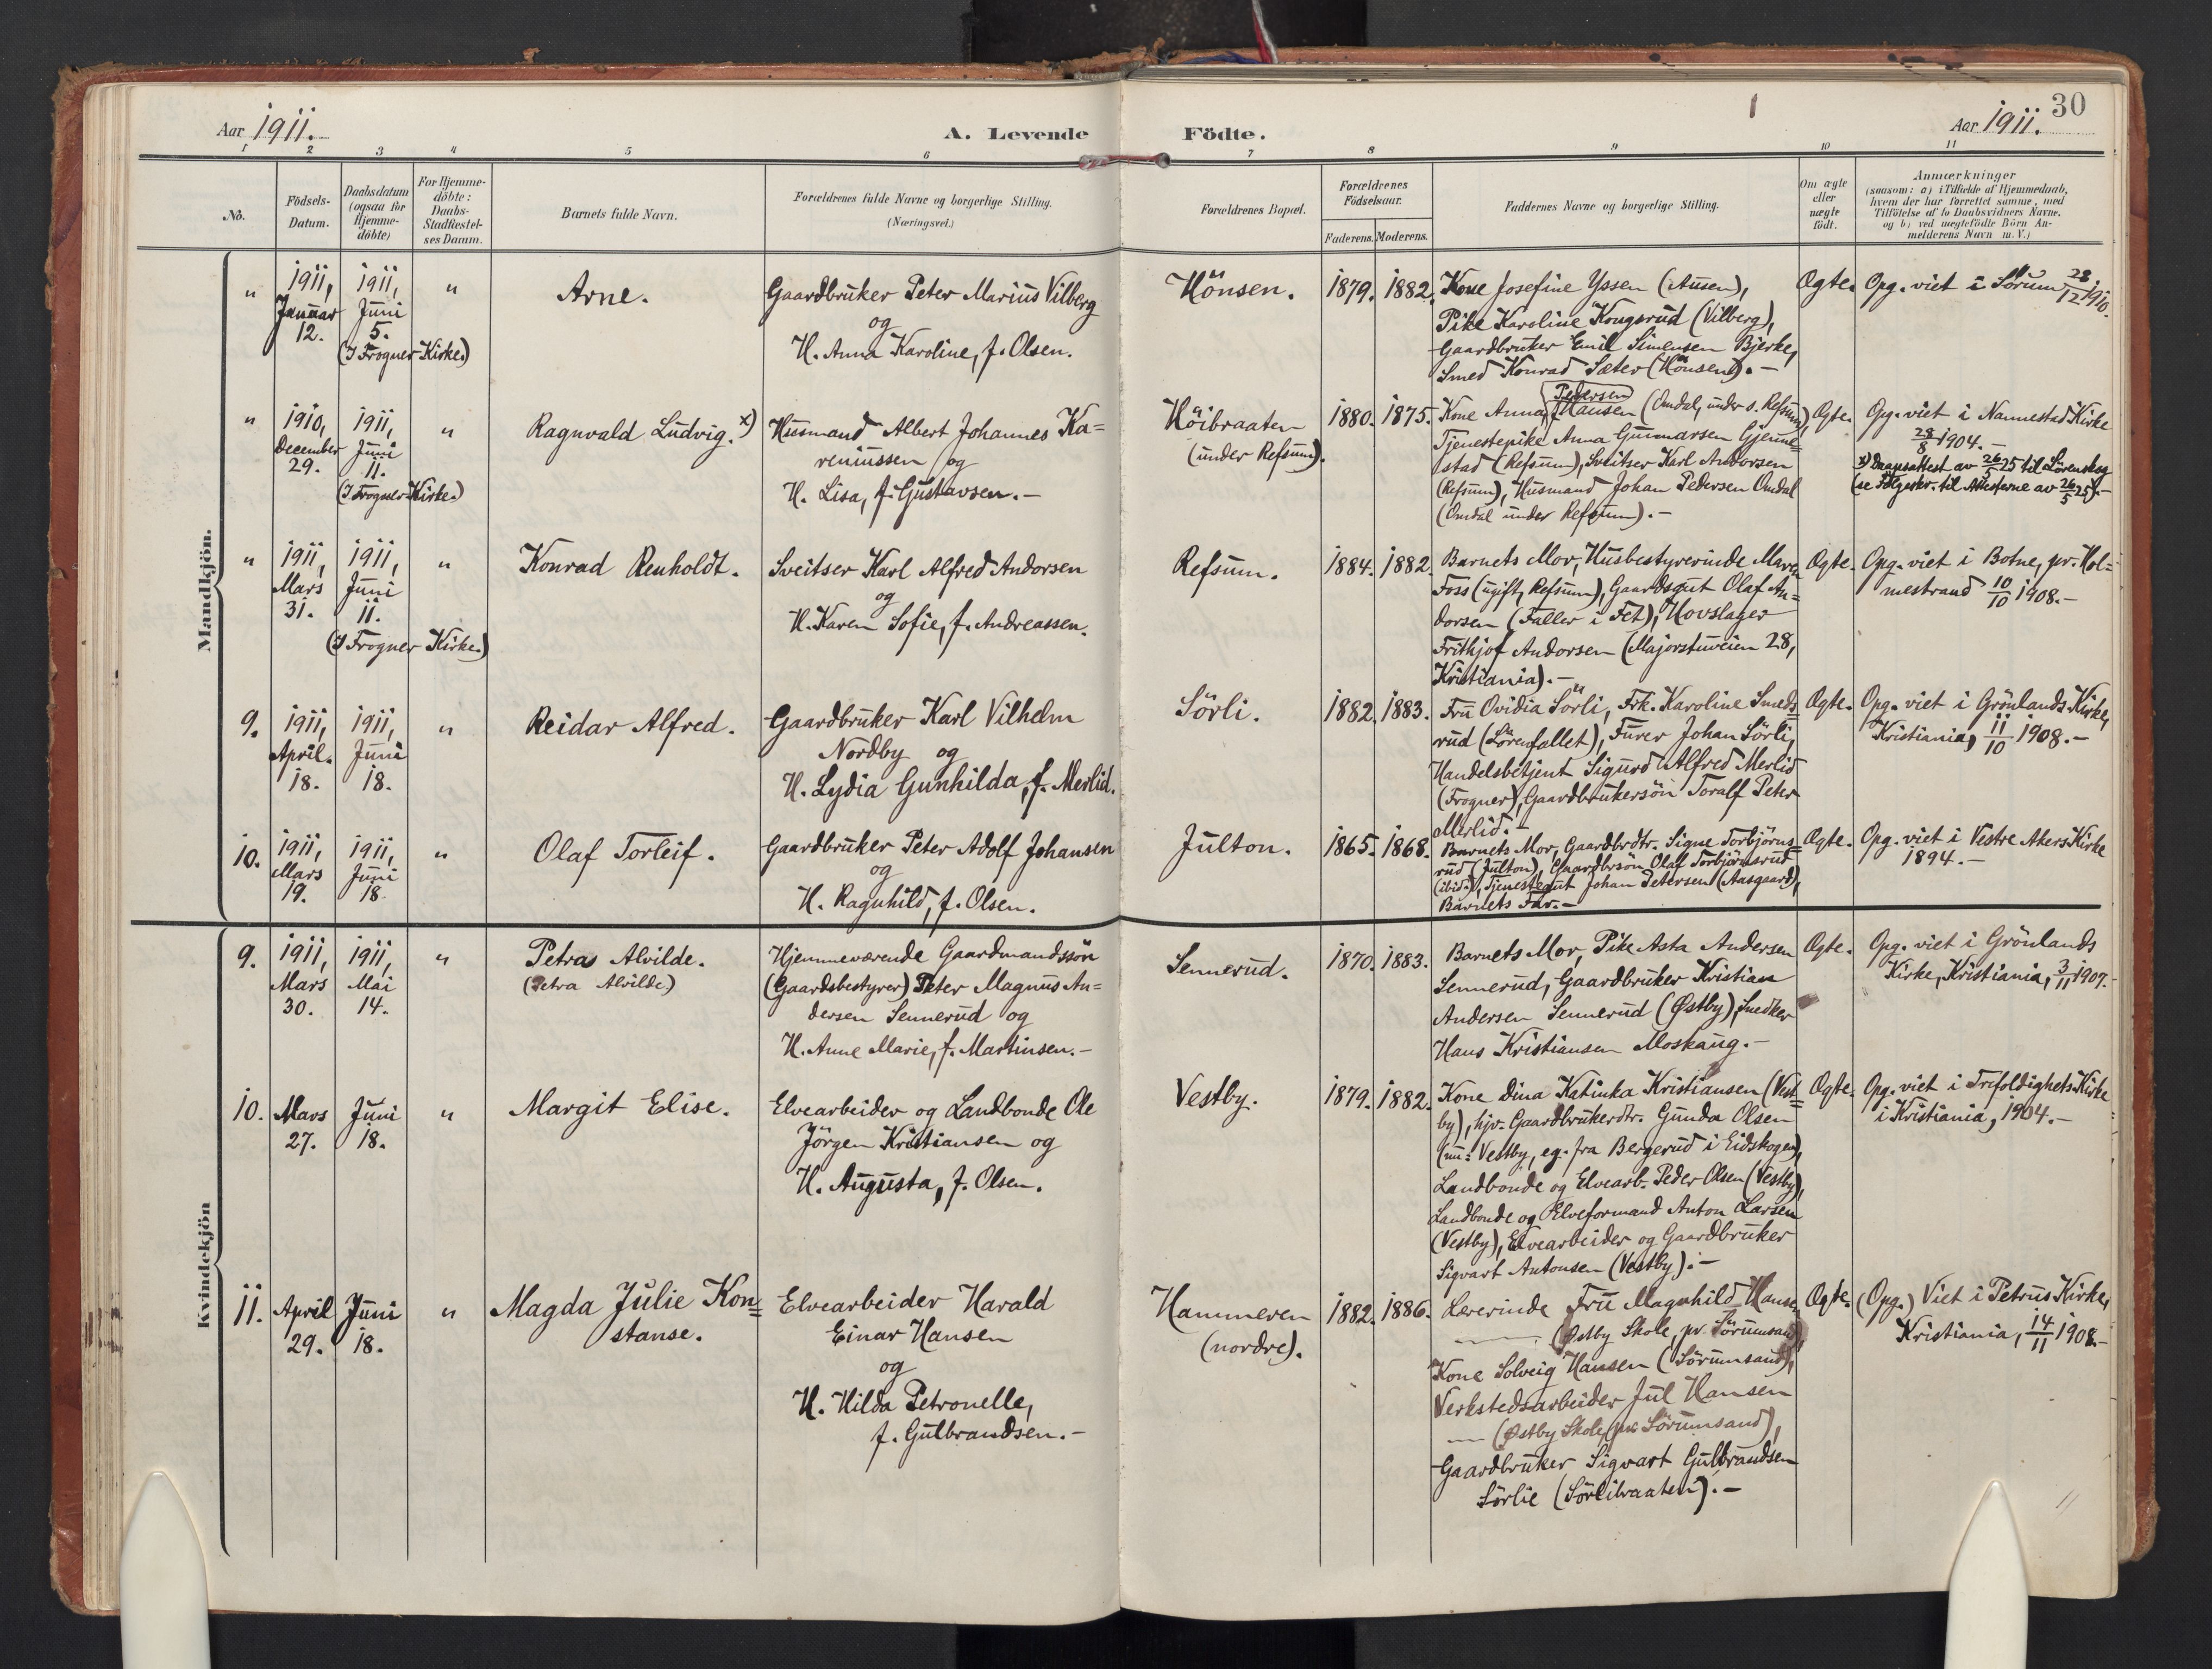 30
Aar 1911.
A. Levende Födte.
Aar 1911.
1 2 3 4 5 6 7 8 9 10 11
No.
Födsels-
Datum.
Daabsdatum
(ogsaa for
Hjemme-
döbte)
For Hjemme-
döbte:
Daabs-
Stadfæstel-
ses Datum.
Barnets fulde Navn.
Forældrenes fulde Navne og borgerlige Stilling.
(Næringsvei.)
Forældrenes Bopæl.
Forældrenes
Födselsaar.
Faderens. Moderens.
Faddernes Navne og borgerlige Stilling.
Om ægte
eller
uægte
födt.
Anmærkninger
(saasom: a) i Tilfælde af Hjemmedaab,
hvem der har forrettet samme, med
Tilföielse af to Daabsvidners Navne,
og b) ved uægtefödte Börn An-
melderens Navn m. V.)
Mandkjön.
"
1911,
Januar
12.
1911,
Juni
5.
(I Frogner Kirke.)
"
Arne.
Gaardbruker Peter Marius Vilberg
og
H. Anna Karoline, f. Olsen.
Hönsen.
1879. 1882.
Kone Josefine Yssen (Ausen),
Pike Karoline Kongsrud (Vilberg),
Gaardbruker Emil Simensen Bjerke,
Smed Konrad Sæter (Hönsen). -
Ægte.
Opg. viet i Sörum 28/12 1910.
"
1910,
December
29.
1911,
Juni
11.
(I Frogner Kirke.)
"
Ragnvald Ludvig. x)
Husmand Albert Johannes Ka=
reniussen og
H. Lisa, f. Gustavsen. -
Höibraaten
(under Refsum).
1880. 1875.
Pedersen
Kone Anna Hansen (Omdal, under s. Refsum),
Tjenestepike Anna Gunnarsen Gjerme=
stad (Refsum), Sveitser Karl Andorsen
(Refsum), Husmand Johan Pedersen Omdal
(Omdal under Refsum). -
Ægte.
Opg. viet i Nannestad Kirke
28/8 1904. -
x) Daapsattest av 26/5 25 til Lörenskog
(se Fölgeskr. til Attesterne av 26/5 25). -
"
1911,
Mars
31.
1911,
Juni
11.
(I Frogner Kirke.)
"
Konrad Renholdt.
Sveitser Karl Alfred Andorsen
og
H. Karen Sofie, f. Andreassen.
Refsum.
1884. 1882.
Barnets Mor, Husbestyrerinde Maren
Foss (ugift, Refsum), Gaardsgut Olaf An=
dorsen (Faller i Fet), Hovslager
Frithjof Andorsen (Majorstuveien 28,
Kristiania). -
Ægte.
Opg. viet i Botne, pr. Hol=
mestrand 10/10 1908. -
9.
1911,
April.
18.
1911,
Juni
18.
"
Reidar Alfred.
Gaardbruker Karl Vilhelm
Nordby og
H. Lydia Gunhilda, f. Merlid.
Sörli.
1882. 1883.
Fru Ovidia Sörli, Frk. Karoline Smeds=
rud (Lörenfallet), Furer Johan Sörli,
Handelsbetjent Sigurd Alfred Merlid
(Frogner), Gaardbrukersön Toralf Peter
Merlid. -
Ægte.
Opg. viet i Grönlands Kirke,
Kristiania, 11/10 1908. -
10.
1911,
Mars
19.
1911,
Juni
18.
"
Olaf Torleif.
Gaardbruker Peter Adolf Johansen
og
H. Ragnhild, f. Olsen.
Julton.
1865. 1868.
Barnets Mor, Gaardbrdtr. Signe Torbjörns=
rud (Julton), Gaardbrsön Olaf Torbjörnsrud
(ibid.), Tjenestegut Johan Petersen (Aasgaard),
Barnets Far. -
Ægte.
Opg. viet i Vestre Akers Kirke
1894. -
Kvindekjön
9.
1911,
Mars
30.
1911,
Mai
14.
"
Petra Alvilde.
(Petra Alvilde)
Hjemmeværende Gaardmandssön
(Gaardsbestyrer) Peter Magnus An=
dersen Sennerud og
H. Anne Marie, f. Martinsen. -
Sennerud.
1870. 1883.
Barnets Mor, Pike Asta Andersen
Sennerud, Gaardbruker Kristian
Andersen Sennerud (Østby), Snedker
Hans Kristiansen Moskaug. -
Ægte.
Opg. viet i Grönlands
Kirke, Kristiania, 3/11 1907. -
10.
Mars
27.
Juni
18.
"
Margit Elise.
Elvearbeider og Landbonde Ole
Jörgen Kristiansen og
H. Augusta, f. Olsen.
Vestby.
1879. 1882.
Kone Dina Katinka Kristiansen (Vest=
by), hjv. Gaardbrukerdtr. Gunda Olsen
(nu: Vestby, eg. fra Bergerud i Eidskogen),
Landbonde og Elvearb. Peder Olsen (Vestby),
Landbonde og Elveformand Anton Larsen
(Vestby), Elvearbeider og Gaardbruker
Sigvart Antonsen (Vestby). -
Ægte.
Opg. viet i Trefoldighets Kirke
i Kristiania, 1904. -
11.
April
29.
Juni
18.
"
Magda Julie Kon=
stanse.
Elvearbeider Harald
Einar Hansen
og
H. Hilda Petronelle,
f. Gulbrandsen. -
Hammeren
(nordre).
1882. 1886.
Lærerinde Fru Magnhild Hansen
(Østby Skole, pr. Sörumsand),
Kone Solveig Hansen (Sörumsand),
Verkstedsarbeider Jul Hansen
(Østby Skole, pr. Sörumsand),
Gaardbruker Sigvart Gulbrandsen
Sörlie (Sörlibraaten). -
Ægte.
(Opg.) Viet i Petrus Kirke,
Kristiania, 14/11 1908. -